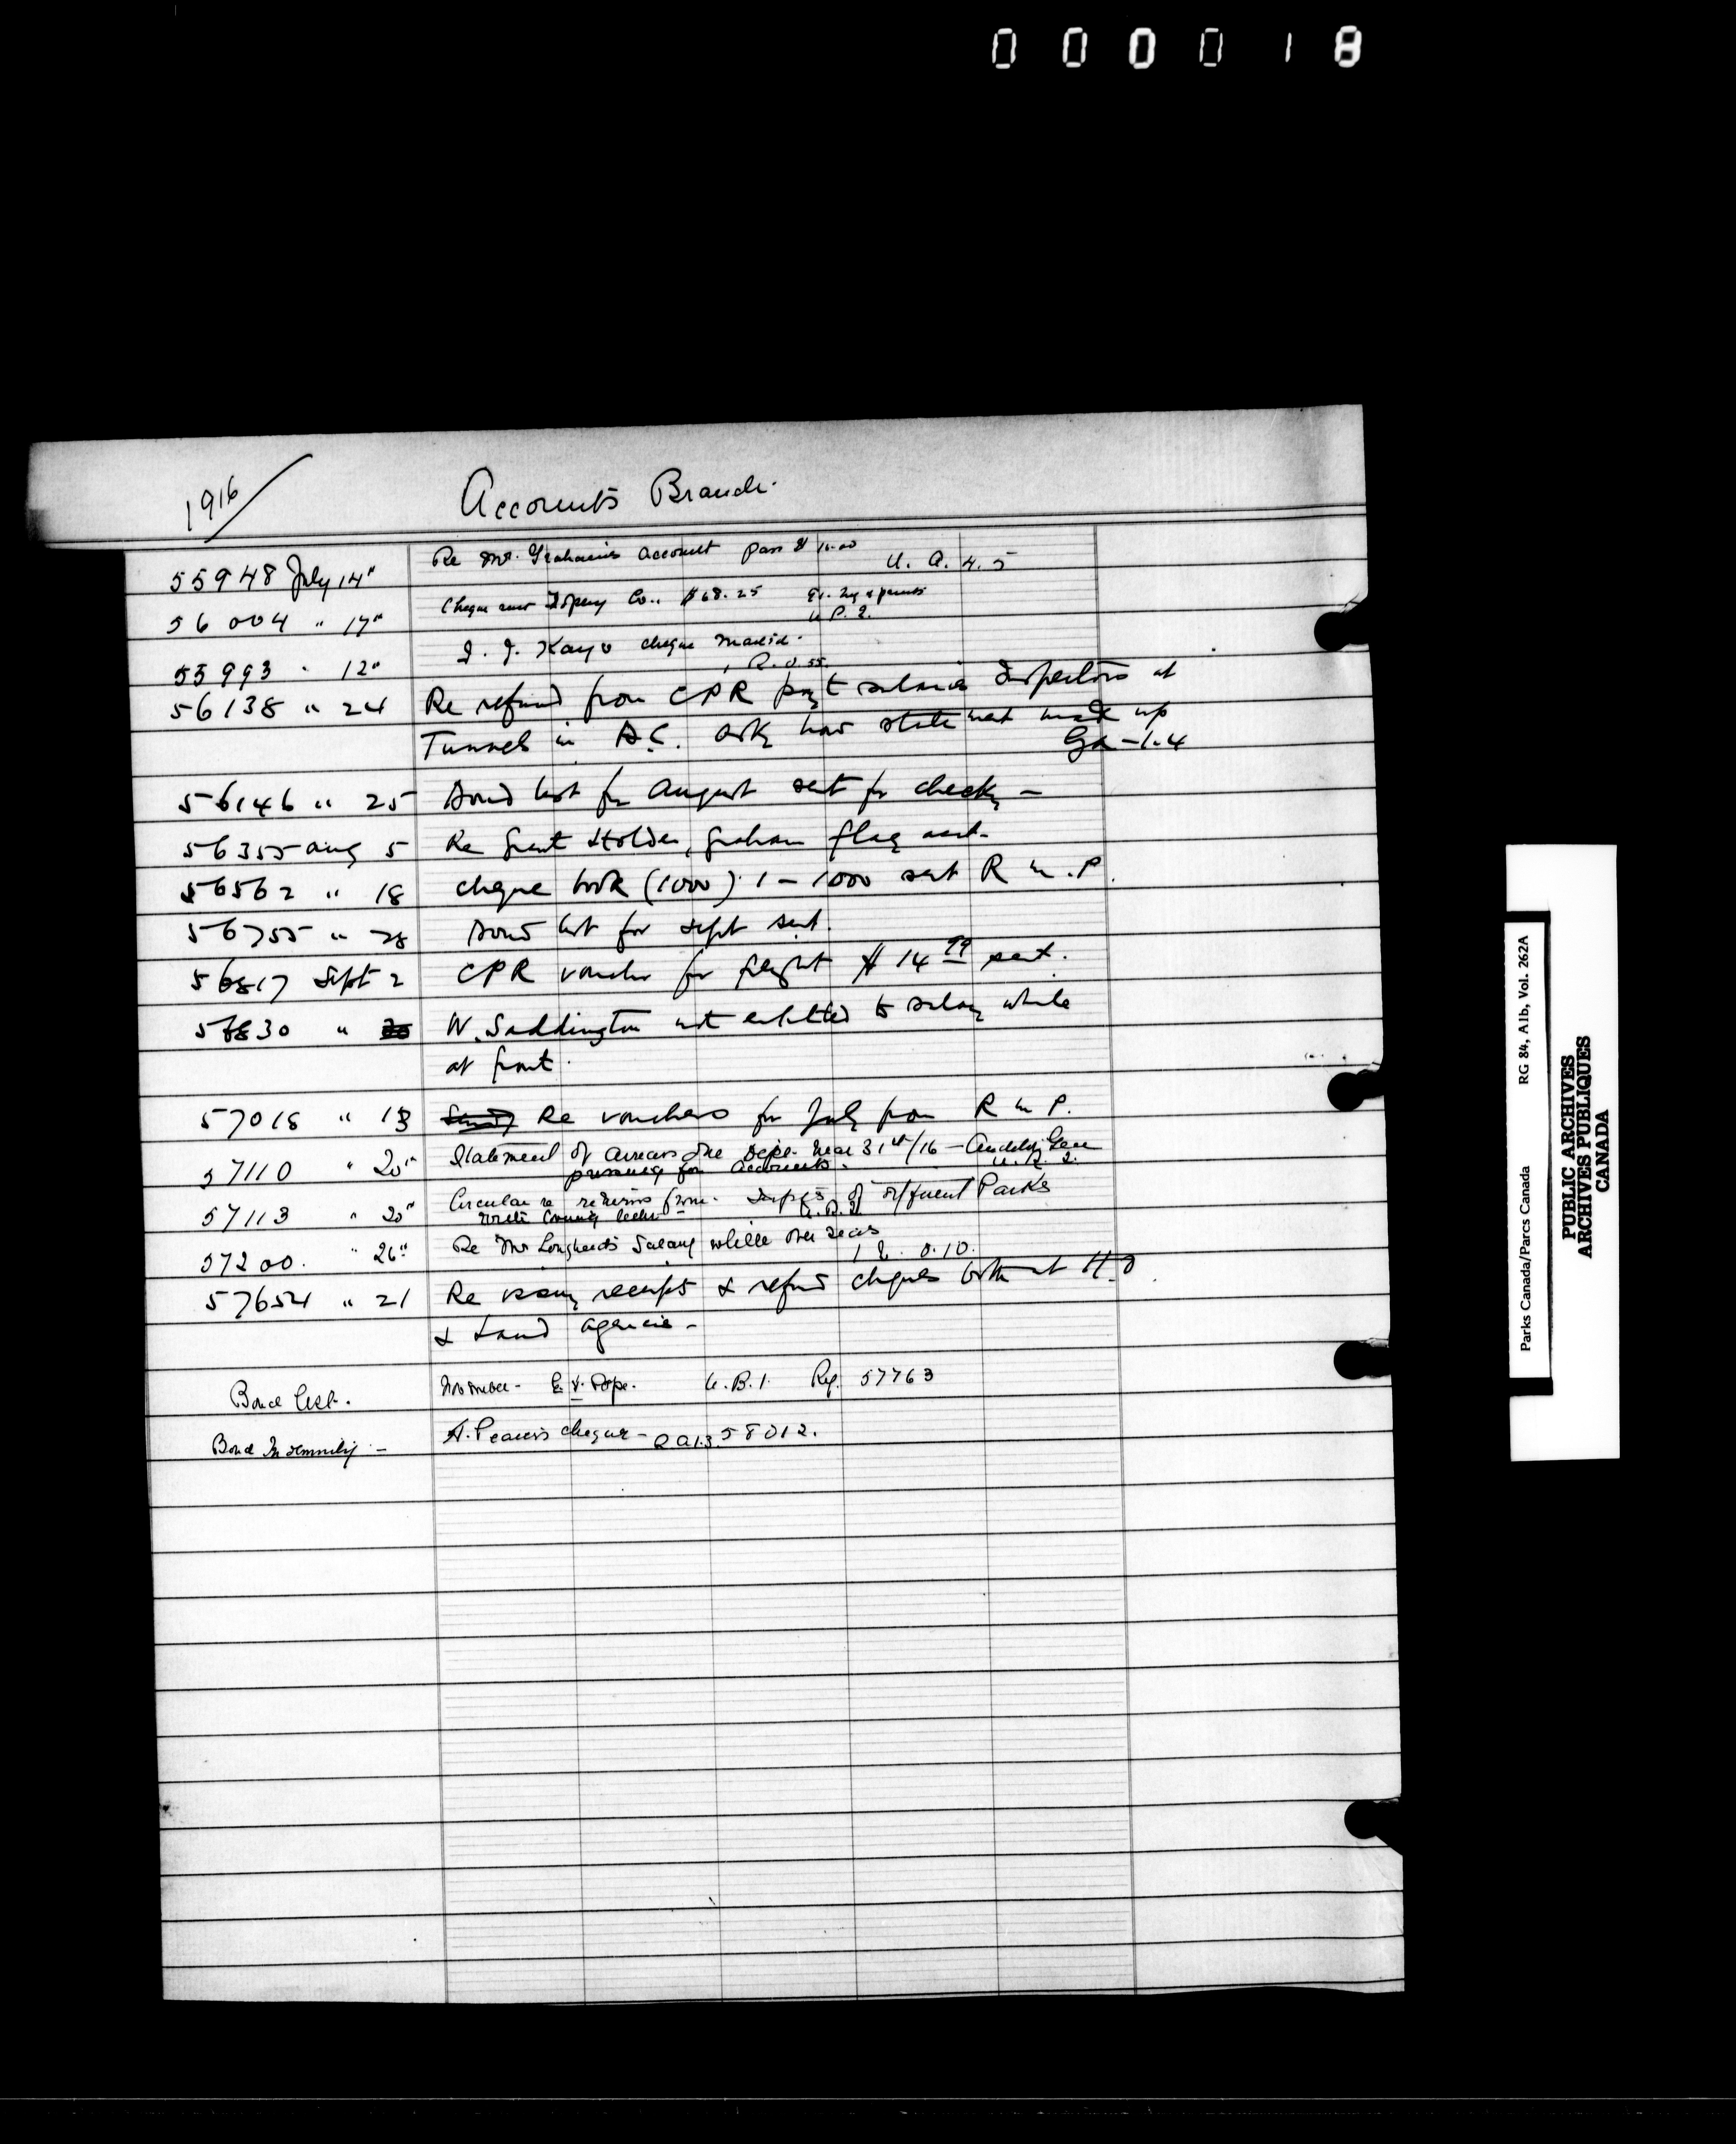 000018
1916
Accounts Branch.
55948 July 14" Re Mr. Graham's account pass $ 10.00 U. A. 4. 5
56004 " 17" Cheque Co.. $68.25
U P. 2.
55993 " 12" J. J. Kayo cheque mailed.
R. O. 55.
56138 " 24 Re refund from CPR salaries Inspectors at
Tunnels in B.C. ask how statement made up
Ga - 1.4
56146 " 25 Bond list for August sent for checkg -
56355 Aug 5 Re Grant Holder, Graham flag acct.
56562 " 18 cheque book (1000) 1 - 1000 sent R M. P.
56755 " 28 Bond list for Sept sent.
56817 Sept 2 CPR voucher for freight $ 14 99 sent.
56830 " W. Saddington not entitled to salary while
at front.
57018 " 13 Re vouchers for July from R M P.
57110 " 20" Statement of arrears due Dept. Mar 31st/16 - Auditor Gen
pressing for accounts. U. R. 2.
57113 " 20" Circular re returns from Supts of different Parks
57200. " 26" Re Mr Lougheed's Salary while over seas
0.10.
57654 " 21 Re issuing receipts & refund cheques both at H O
& Land agencies -
Bond List. November - E. V. Pope. U. B. 1. Reg. 57763
Bond Indemnity - A. Pearce's cheque - 58012.
Parks Canada/Parcs Canada RG 84, A1b, Vol. 262A
PUBLIC ARCHIVES
ARCHIVES PUBLIQUES
CANADA